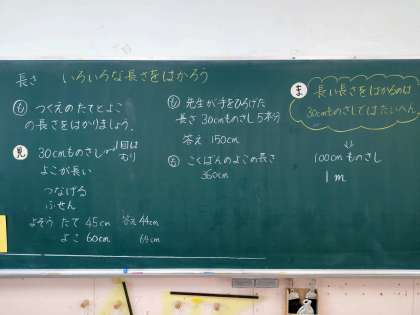 長さ いろいろな長さをはかろう
も つくえのたてとよこ
の長さをはかりましょう。
見 30cmものさし 1回は
むり
よこが長い
つなげる
ふせん
よそう たて 45cm 答え 44cm
よこ 60cm 64cm
も 先生が手をひろげた
長さ 30cmものさし 5本分
答え 150cm
も こくばんのよこの長さ
360cm
ま 長い長さをはかるのは
30cmものさしではたいへん。
↓
100cmものさし
1m